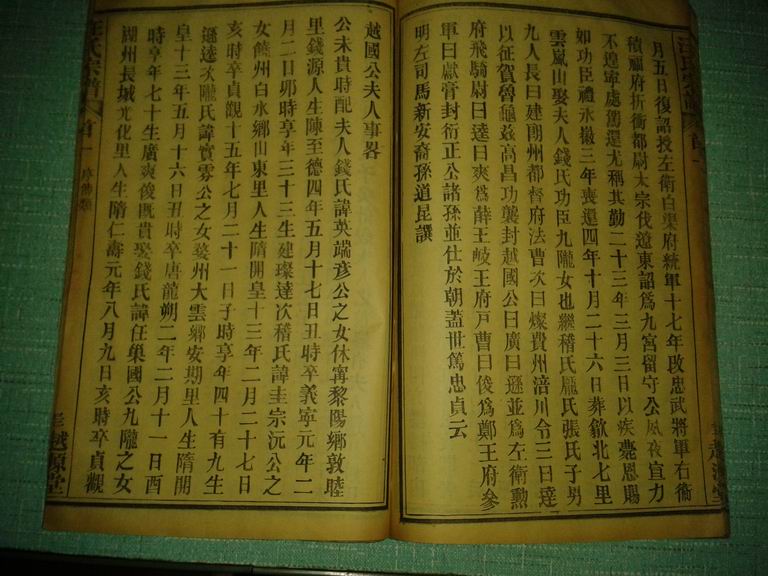 月五日復詔授左衛白渠府統軍十七年改忠武將軍右衛
積福府折衝都尉太宗伐遼東詔為九宮留守公夙夜宣力
不遑寧處駕還尤稱其勤二十三年三月三日以疾薨恩賜
如功臣禮永徽三年喪還四年十月二十六日葬歙北七里
雲嵐山娶夫人錢氏功臣九隴女也繼稽氏龐氏張氏子男
九人長曰建朗州都督府法曹次曰燦費州涪川令三曰達
以征賀魯龜茲高昌功襲封越國公曰廣曰遜並為左衛勲
府飛騎尉曰逵曰爽爲薛王岐王府戶曹曰俊爲鄭王府參
軍曰獻育封衍正公諸孫並仕於朝蓋世篤忠貞云
明左司馬新安裔孫道昆譔
越國公夫人事畧
公未貴時配夫人錢氏諱英端彦公之女休寧黎陽鄉敦睦
里錢源人生陳至德四年五月十七日丑時卒義寧元年二
月二日卯時享年三十三生建璨達次稽氏諱圭宗沅公之
女饒州白水鄉山東里人生隋開皇十三年二月二十七日
亥時卒貞觀十五年七月二十一日子時享年四十有九生
遜逵次龐氏諱實雰公之女婺州大雲鄉安期里人生隋開
皇十三年五月十六日丑時卒唐龍朔二年二月十一日酉
時享年七十生廣爽俊既貴娶錢氏諱任巢國公九隴之女
湖州長城光化里人生隋仁壽元年八月九日亥時卒貞觀
汪氏宗譜
首一
越源堂